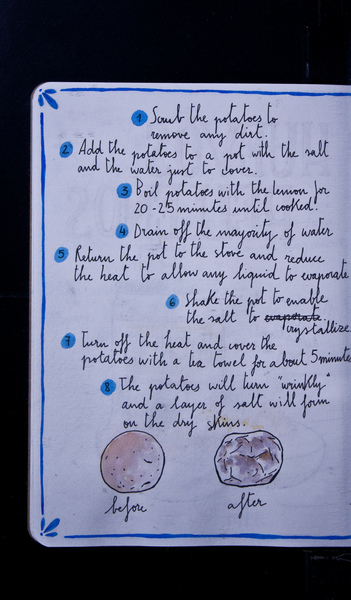 1 Scrub the potatoes to
remove any dirt.
2 Add the potatoes to a pot with the salt
and the water just to cover.
3 Boil potatoes with the lemon for
20-25 minutes until cooked!
4 Drain off the mayority of water
5 Return the pot to the stove and reduce
the heat to allow any liquid to evaporate
6 Shake the pot to enable
the salt to evaporate
crystallize
7 Turn off the heat and cover the
potatoes with a tea towel for about 5 minutes
8 The potatoes will turn "wrinkly"
and a layer of salt will form
on the dry skins.
before
after